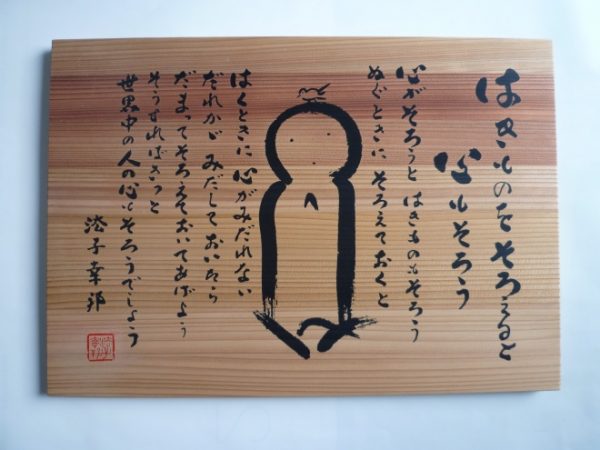 はきものをそろえると
心もそろう
心がそろうと はきものもそろう
ぬぐときに そろえておくと
はくときに 心がみだれない
だれかが みだしておいたら
だまってそろえておいてあげよう
そうすればきっと
世界中の人の心もそろうでしょう
幸邦